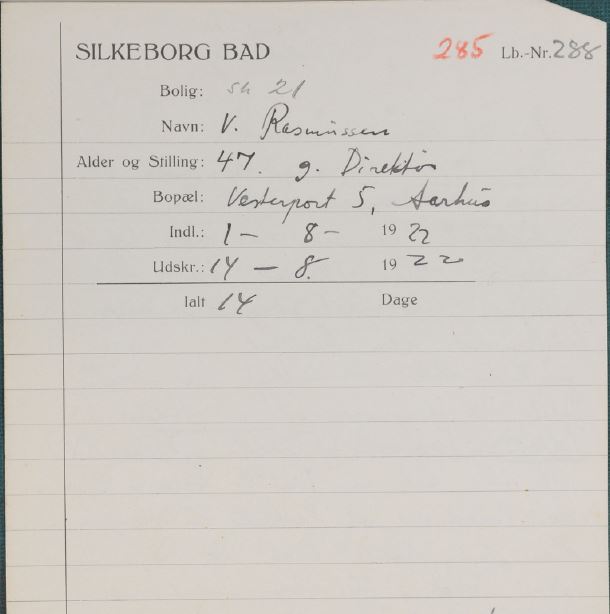 SILKEBORG BAD 285 Lb.-Nr. 288
Bolig: Sh 21
Navn: V. Rasmussen
Alder og Stilling: 47. g. Direktör
Bopæl: Vesterport 5, Aarhus
Indl.: 1 - 8 - 19 22
Udskr.: 14 - 8. 19 22
Ialt 14 Dage